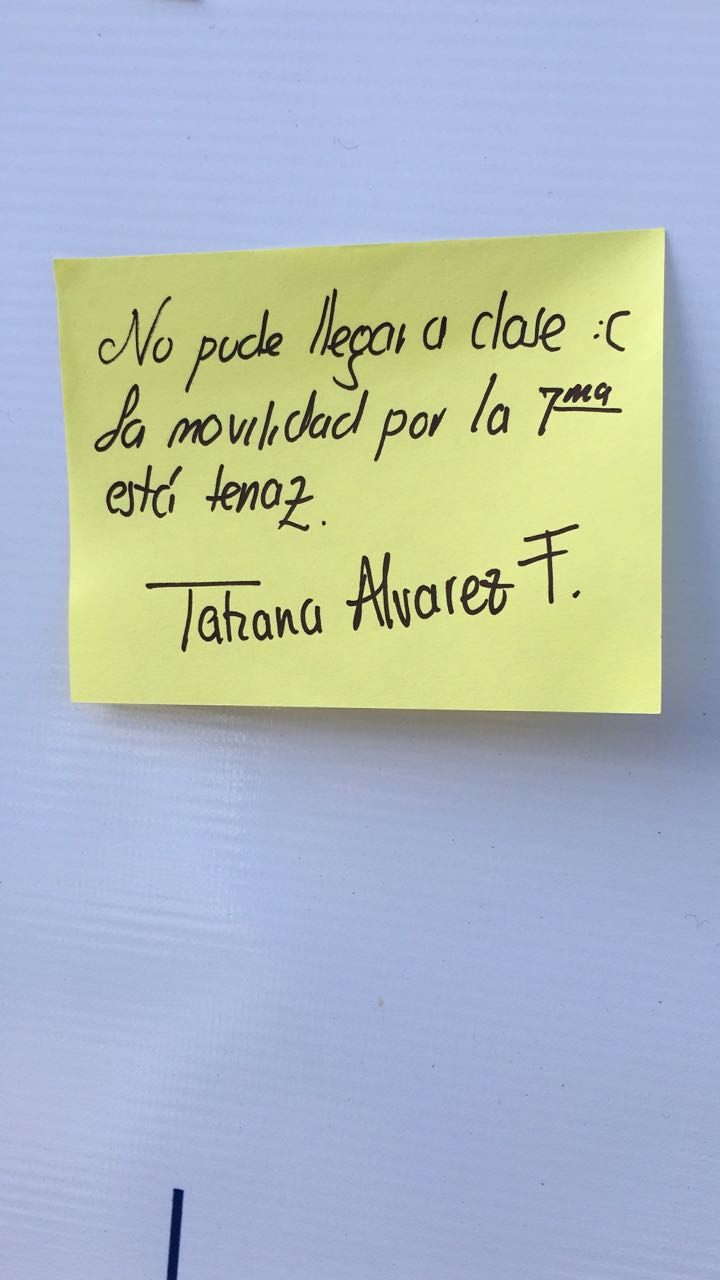 No pude llegar a clase :C
La movilidad por la 7ma
está tenaz.
Tatiana Alvarez F.